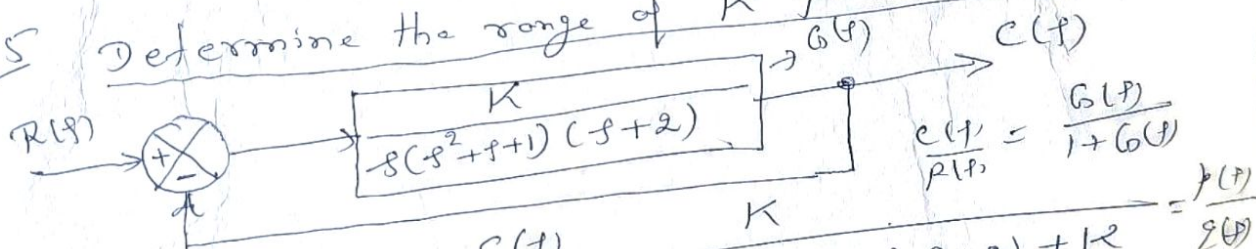 5 Determine the range of K
→ G(s) C(s)
R(s) + - K / s(s²+s+1)(s+2)
C(s)/R(s) = G(s)/1+G(s)
C(s) K = p(s)/q(s)
+K